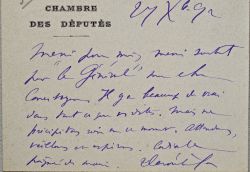 CHAMBRE
DES DÉPUTÉS
27 Xbre 92
merci pour moi, merci surtout
pour "le Général" mon cher
Il y a beaucoup de vrai
dans tout ce que vous dites, mais ne
précipitons rien en ce moment, attendons,
veillons et espérons. Cordiale
poignée de main.